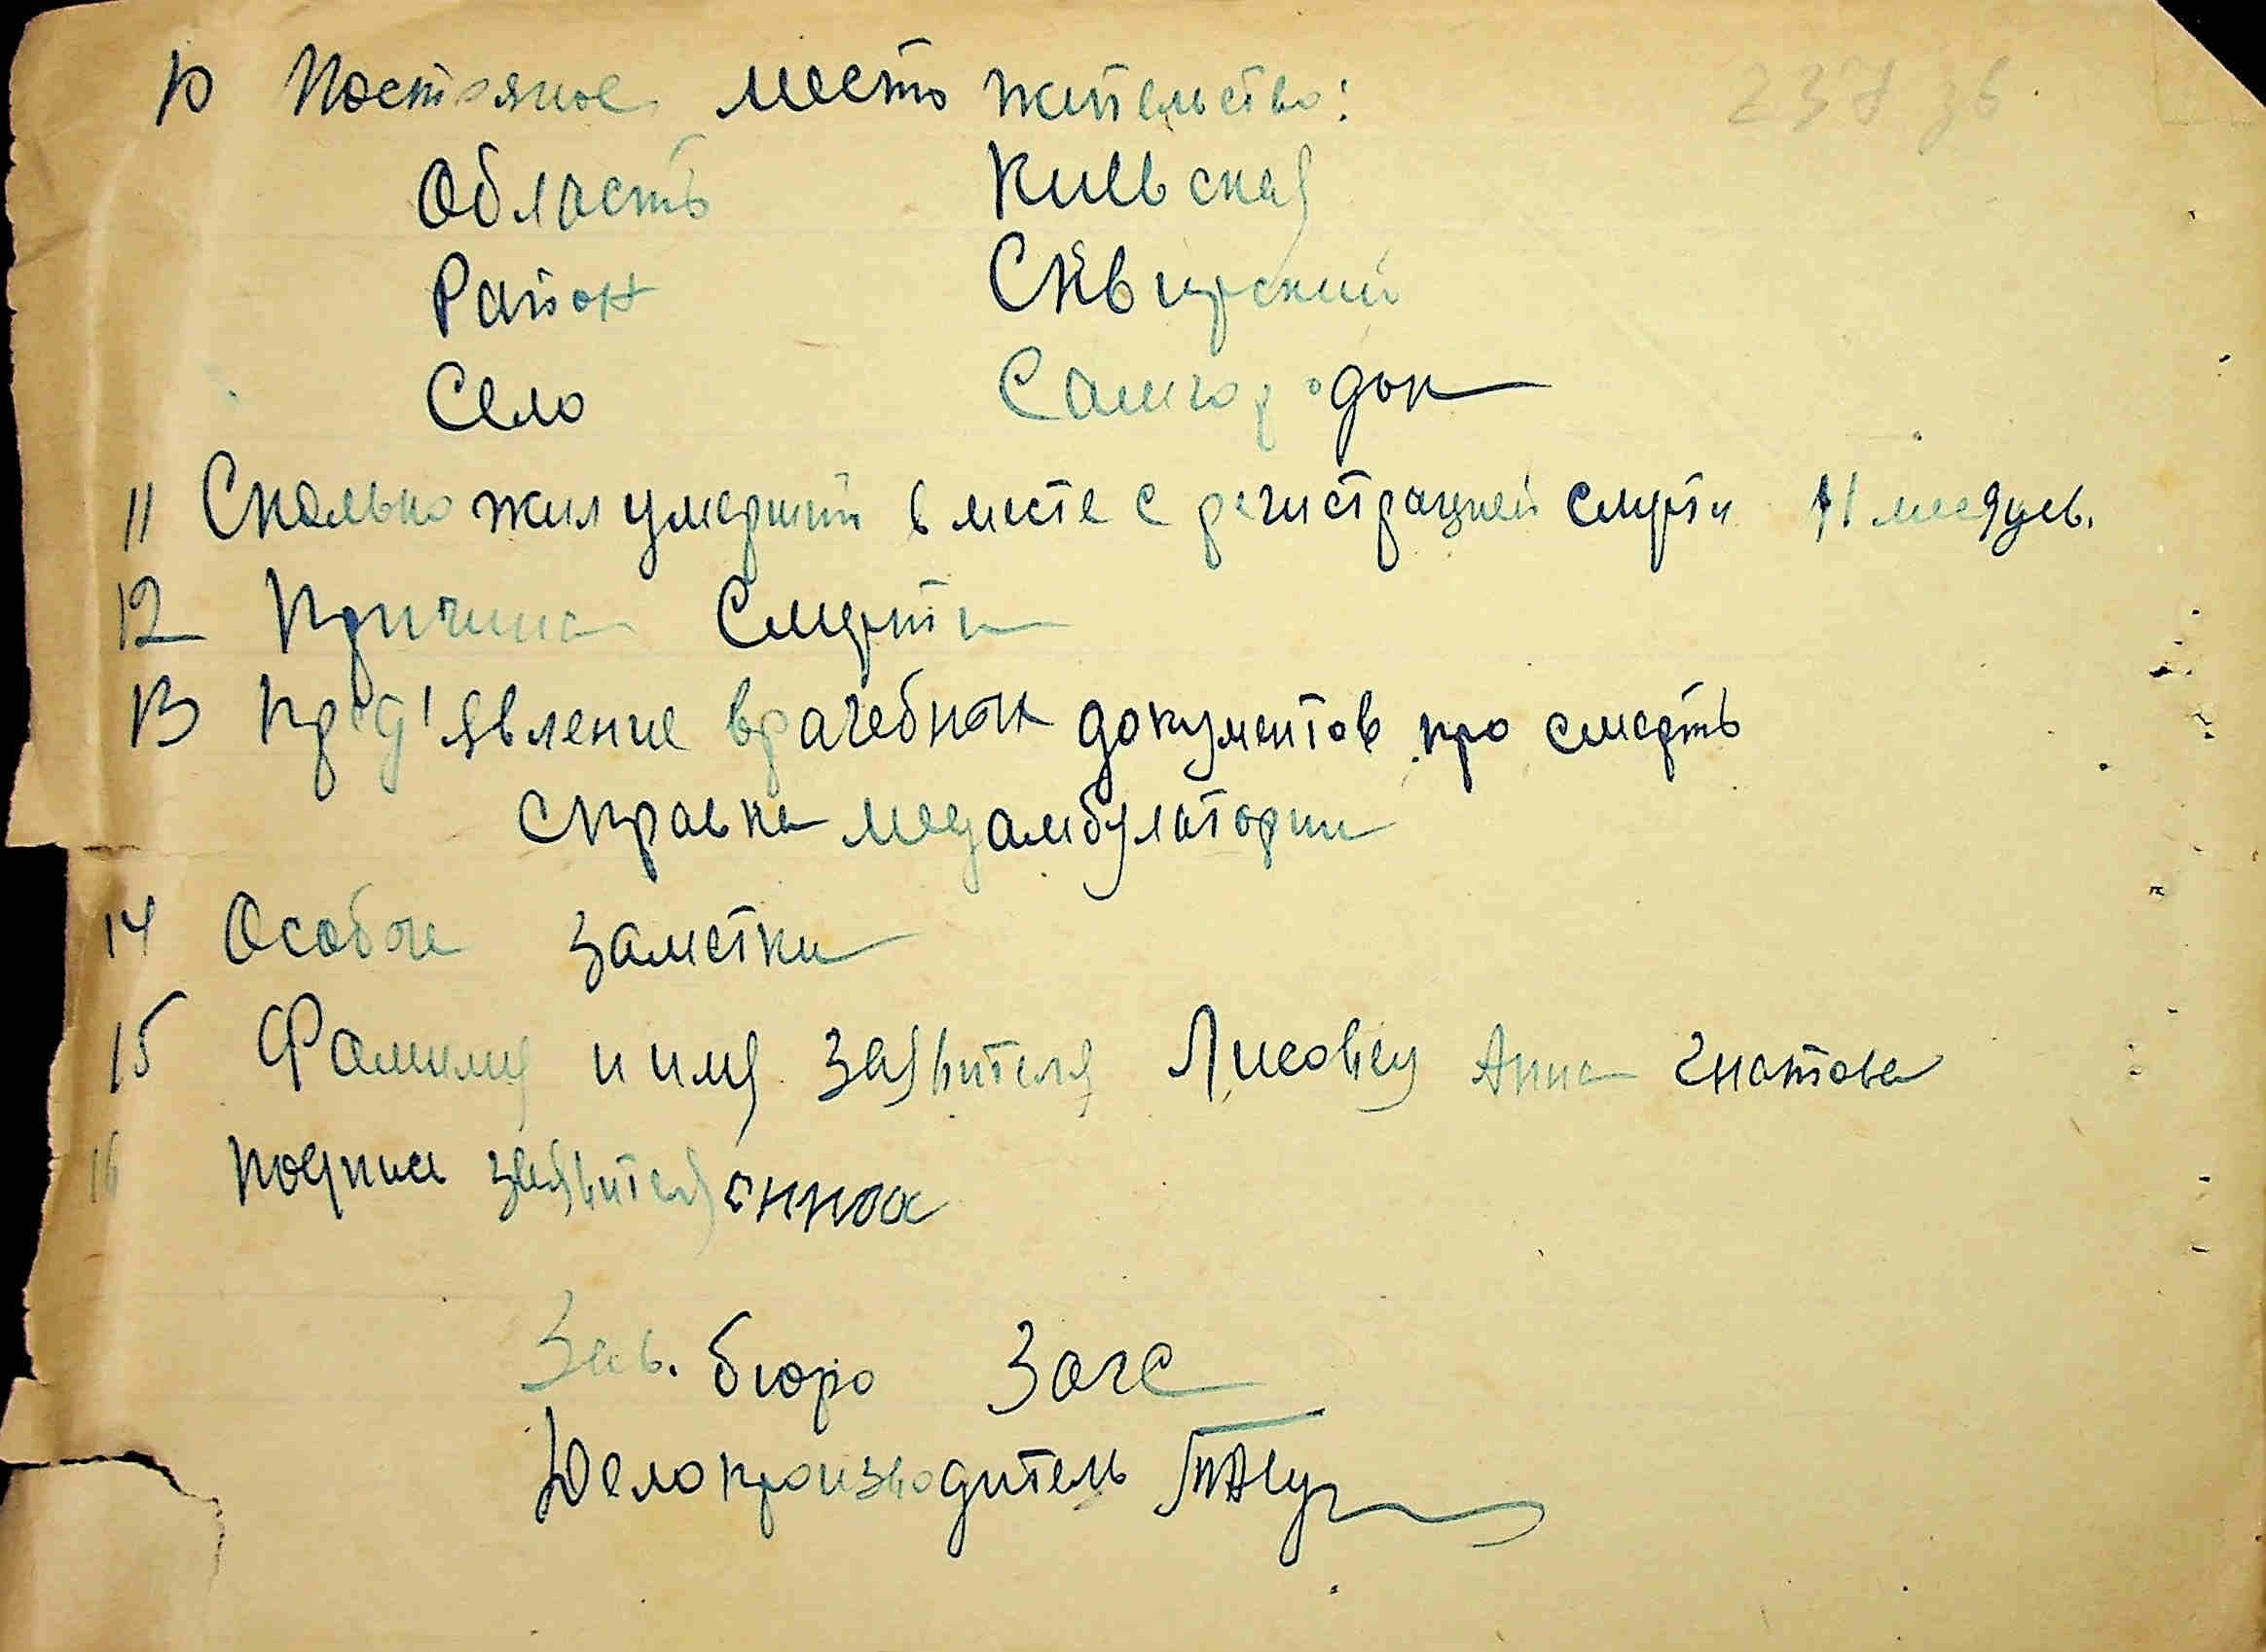 237 зв
10 Постояное место жительство:
Область Киевская
Район Сквирский
Село Самгородок
11 Сколько жил умерший в месте с регистрацией смерти 11 месяцев.
12 Причина Смерти
13 Пред'явление врачебных документов про смерть
справка медамбулатории
14 Особые заметки
15 Фамилия и имя заявителя Лисовец Анна Гнатова
16 подпись заявителя
Зав. бюро Загс
Делопроизводитель